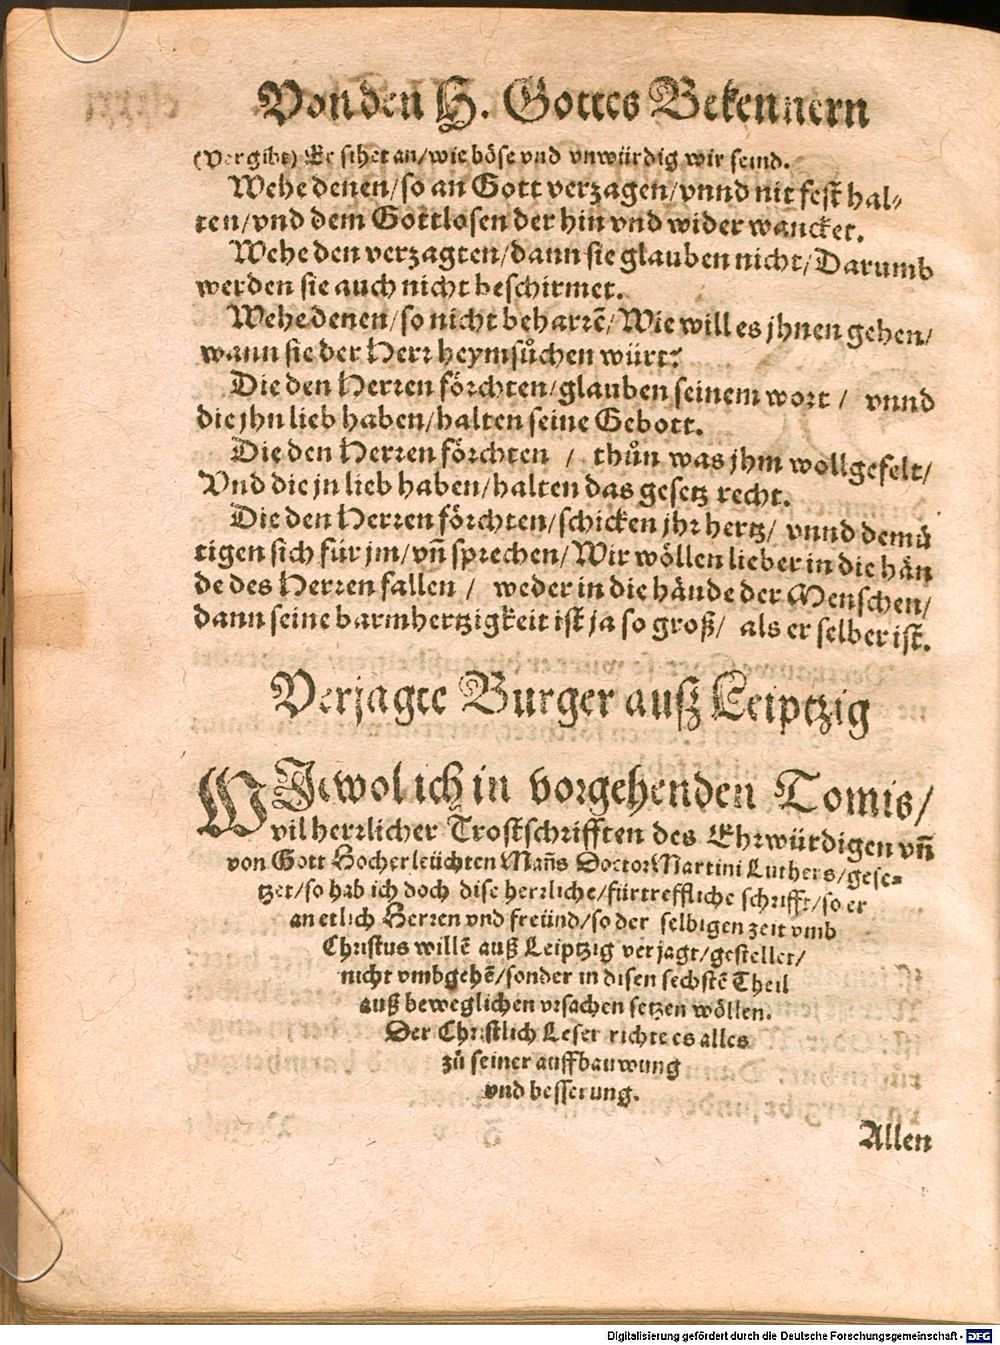 Von den H. Gottes Bekennern
(Vergibt) Er sihet an/wie böse vnd vnwürdig wir seind.
Wehe denen/so an Gott verzagen/vnnd nit fest hal-
ten/vnd dem Gottlosen der hin vnd wider wancket.
Wehe den verzagten/dann sie glauben nicht/Darumb
werden sie auch nicht beschirmet.
Wehe denen/so nicht beharrē/Wie will es jhnen gehen/
wann sie der Herr heymsůchen würt?
Die den Herren förchten/glauben seinem wort / vnnd
die jhn lieb haben/halten seine Gebott.
Die den Herren förchten / thůn was jhm wollgefelt/
Vnd die jn lieb haben/halten das gesetz recht.
Die den Herren förchten/schicken jhr hertz/ vnnd demü
tigen sich für jm/vn̄ sprechen/Wir wöllen lieber in die hän
de des Herren fallen / weder in die hände der Menschen/
dann seine barmhertzigkeit ist ja so groß/ als er selber ist.
Verjagte Burger auß Leiptzig
WJewol ich in vorgehenden Tomis/
vil herrlicher Trostschrifften des Ehrwürdigen vn̄
von Gott Hocherleüchten Man̄s Doctor Martini Luthers/gese-
tzet/so hab ich doch dise herrliche/fürtreffliche schrifft/so er
an etlich Herren vnd freünd/so der selbigen zeit vmb
Christus willē auß Leiptzig verjagt/gestellet/
nicht vmbgehē/sonder in disen sechstē Theil
auß beweglichen vrsachen setzen wöllen.
Der Christlich Leser richte es alles
zů seiner auffbauwung
vnd besserung.
Allen
Digitalisierung gefördert durch die Deutsche Forschungsgemeinschaft - DFG